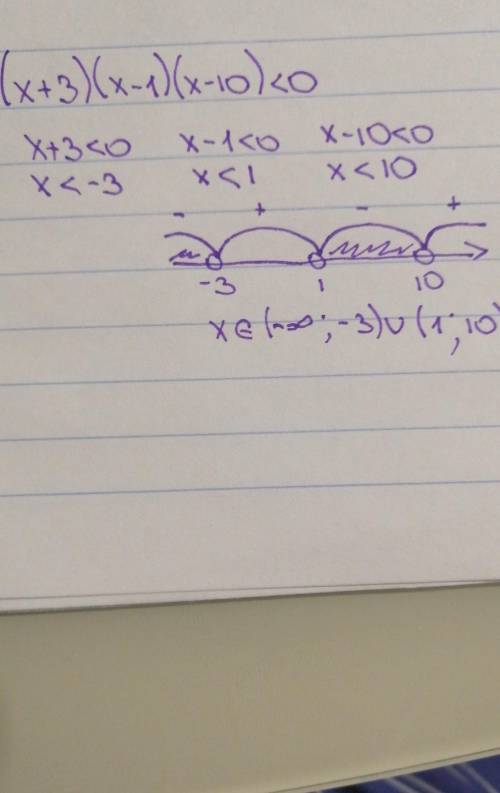 (x+3)(x-1)(x-10)<0
x+3<0 x-1<0 x-10<0
x<-3 x<1 x<10
- + - +
-3 1 10
x∈(-∞;-3)∪(1;10)